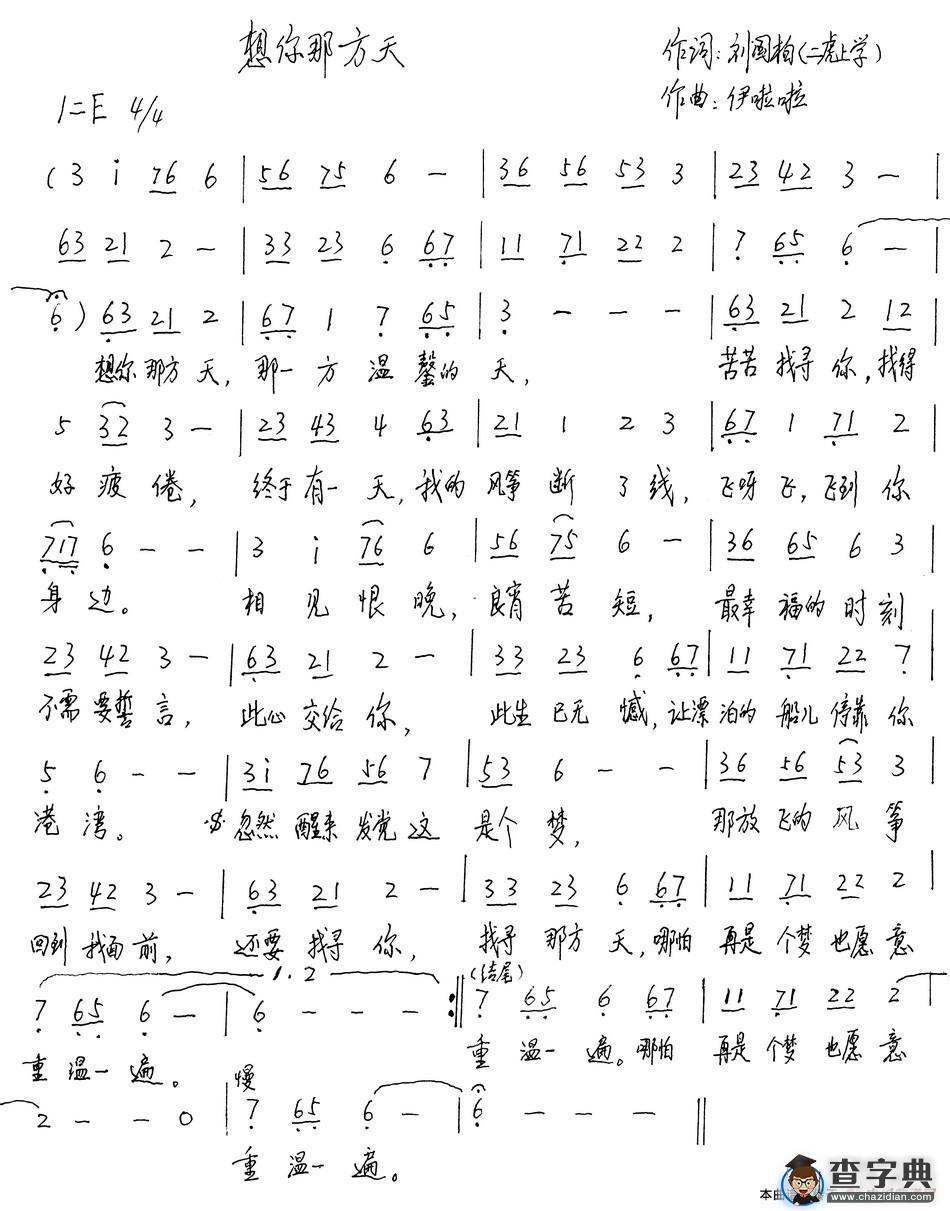 想你那方天
作词:刘国柏(二虎上学)
作曲:伊啦啦
1=E 4/4
(3 i 76 6 | 56 75 6 - | 36 56 53 3 | 23 42 3 - |
63 21 2 - | 33 23 6 67 | 11 71 22 2 | 7 65 6 - |
6) 63 21 2 | 67 1 7 65 | 3 - - - | 63 21 2 12 |
想你那方天,那一方温馨的天,苦苦找寻你,找得
5 32 3 - | 23 43 4 63 | 21 1 2 3 | 67 1 71 2 |
好疲倦,终于有一天,我的风筝断了线,飞呀飞,飞到你
717 6 - - | 3 i 76 6 | 56 75 6 - | 36 65 6 3 |
身边。相见恨晚,良宵苦短,最幸福的时刻
23 42 3 - | 63 21 2 - | 33 23 6 67 | 11 71 22 7 |
不需要誓言,此心交给你,此生已无憾,让漂泊的船儿停靠你
5 6 - - | 3i 76 56 7 | 53 6 - - | 36 56 53 3 |
港湾。𝄋忽然醒来发觉这是个梦,那放飞的风筝
23 42 3 - | 63 21 2 - | 33 23 6 67 | 11 71 22 2 |
回到我面前,还要找寻你,找寻那方天,哪怕再是个梦也愿意
1.2 (结尾)
7 65 6 - | 6 - - - :‖ 7 65 6 67 | 11 71 22 2 |
重温一遍。重温一遍。哪怕再是个梦也愿意
慢
2 - - 0 | 7 65 6 - | 6 - - - ‖
重温一遍。
查字典
www.chazidian.com
本曲